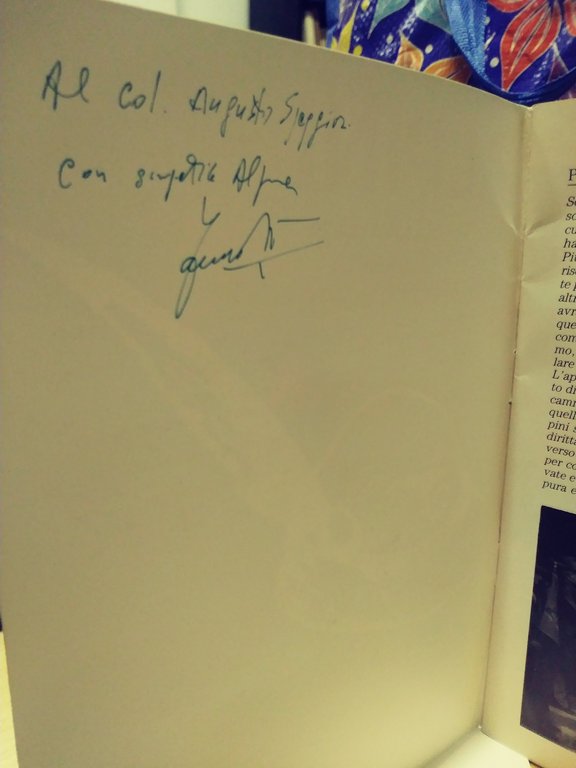 Al Col. Augusto
Con simpatia Alpina
P
Se
so
cu
ha
Piu
ris
te p
altr
avr
que
com
mo,
lare
L'ap
to di
camn
quell
pini s
diritta
verso
per co
vate e
pura e